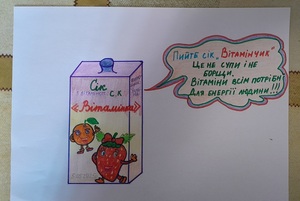 Сік
с.к
«Вітамінка»
Пийте сік „Вітамінчик"
Це не супи і не
борщи,
Вітаміни всім потрібні
Для енергії людини!!!